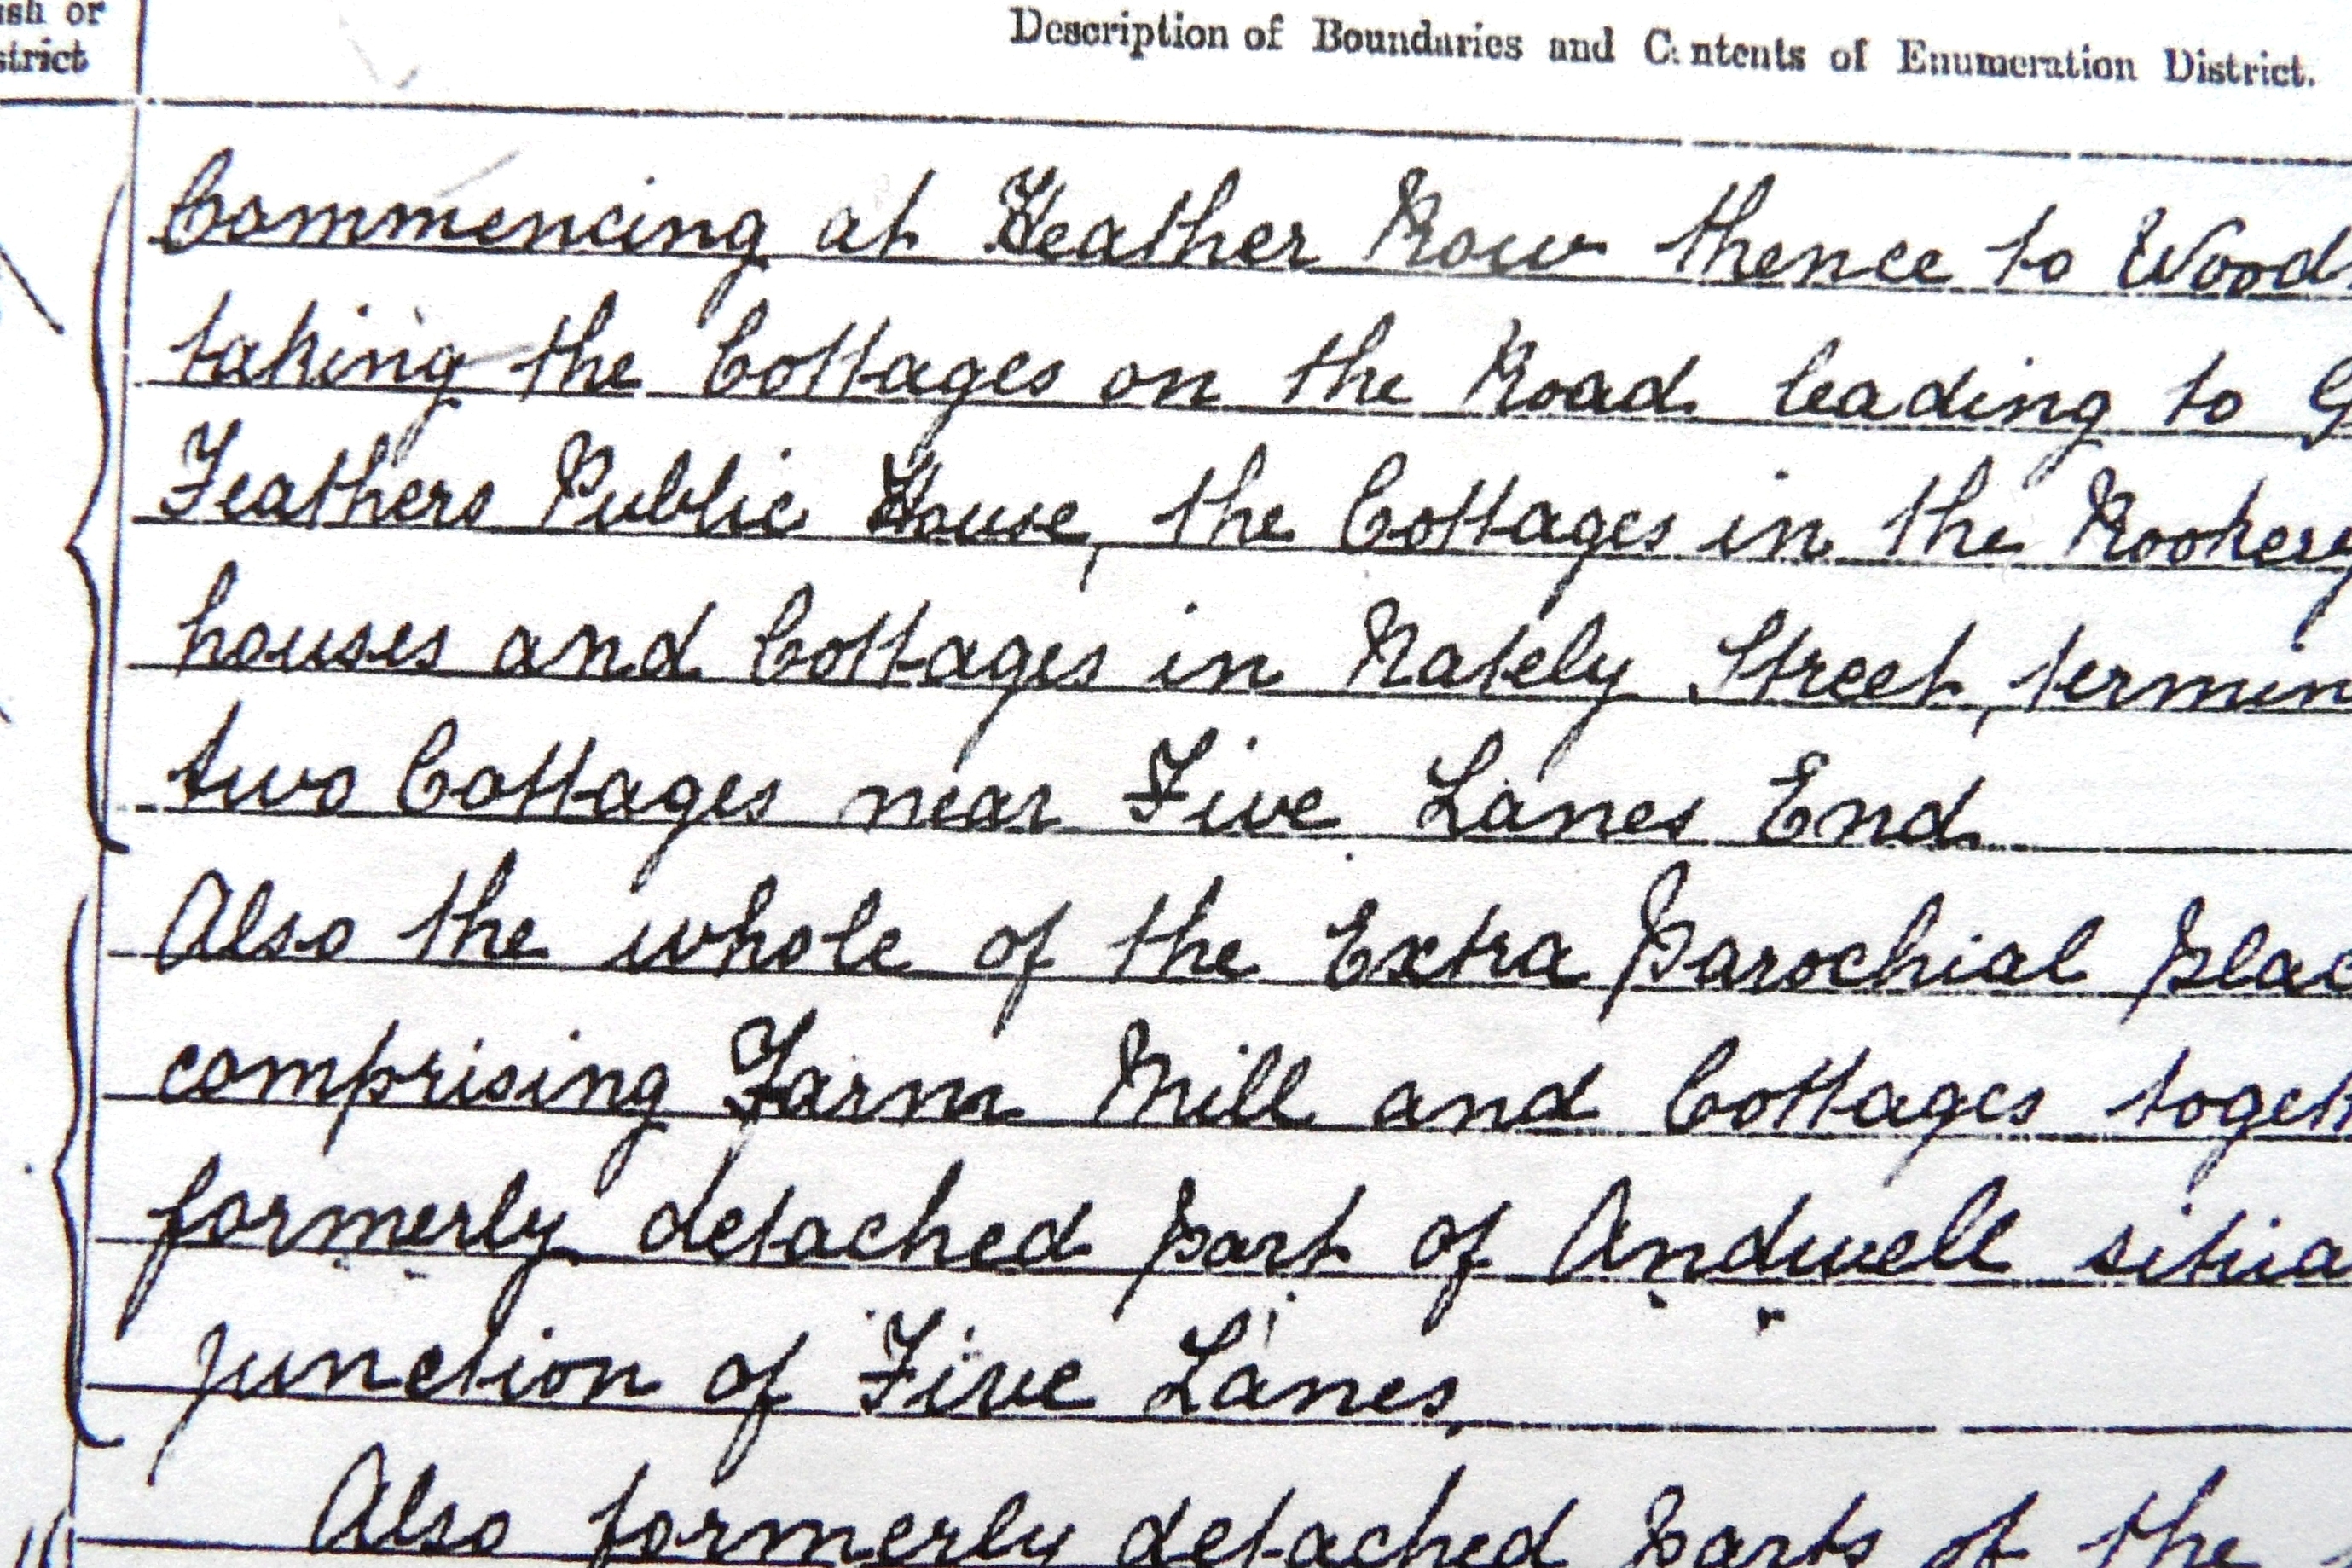 ish or
strict
Description of Boundaries and Contents of Enumeration District.
Commencing at Heather Row thence to Wood
taking the Cottages on the Road leading to G
Feathers Public House, the Cottages in the Rookery
houses and Cottages in Nately Street, termin
two Cottages near Five Lanes End
Also the whole of the Extra Parochial plac
comprising Farm Mill and Cottages toget
formerly detached part of Andwell situa
junction of Five Lanes
Also formerly detached parts of the